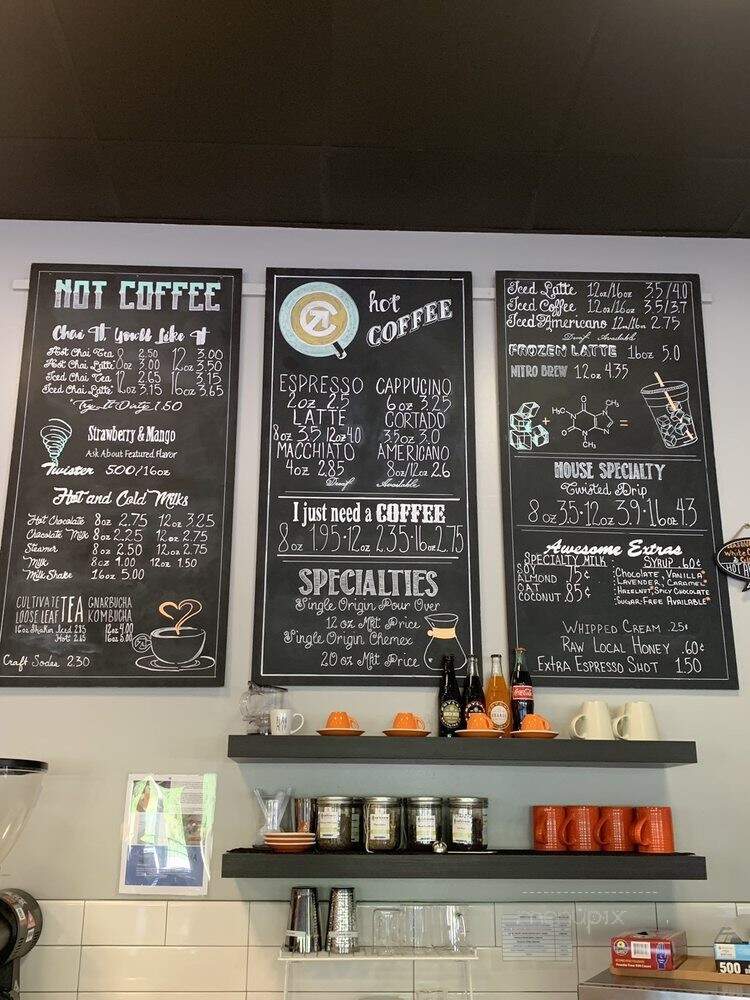 NOT COFFEE
Chai It, You'll Like It
Hot Chai Tea 8 2.50 12 3.00
Hot Chai Latte 8oz 3.00 12oz 3.50
Iced Chai Tea 12 2.65 16 3.15
Iced Chai Latte 12oz 3.15 16oz 3.65
"Try It Dirty" 1.50
Strawberry & Mango
Ask About Featured Flavor
Twister 5.00/16oz
Hot and Cold Milks
Hot Chocolate 8oz 2.75 12oz 3.25
Chocolate Milk 8oz 2.25 12oz 2.75
Steamer 8oz 2.50 12oz 2.75
Milk 8oz 1.00 12oz 1.50
Milk Shake 16oz 5.00
CULTIVATE TEA
LOOSE LEAF
16oz Shaken Iced 2.85
Hot 2.15
GNARBUCHA
KOMBUCHA
12oz 4.00
16oz 5.00
Craft Sodas 2.30
hot
COFFEE
ESPRESSO
2oz 2.5
LATTE
8oz 3.5 12oz 4.0
MACCHIATO
4oz 2.85
CAPPUCINO
6oz 3.25
CORTADO
3.5oz 3.0
AMERICANO
8oz/12oz 2.6
Decaf Available
I just need a COFFEE
8oz 1.95 · 12oz 2.35 · 16oz 2.75
SPECIALTIES
Single Origin Pour Over
12oz Mkt Price
Single Origin Chemex
20oz Mkt Price
Iced Latte 12oz/16oz 3.5/4.0
Iced Coffee 12oz/16oz 3.5/3.7
Iced Americano 12oz/16oz 2.75
Decaf Available
FROZEN LATTE 16oz 5.0
NITRO BREW 12oz 4.35
+
H₃C
CH₃
CH₃
=
HOUSE SPECIALTY
Twisted Drip
8oz 3.5 · 12oz 3.9 · 16oz 4.3
Awesome Extras
SPECIALTY MILK
SOY
ALMOND 75¢
OAT
COCONUT 85¢
SYRUP .60¢
CHOCOLATE, VANILLA
LAVENDER, CARAMEL
HAZELNUT, SPICY CHOCOLATE
"SUGAR-FREE AVAILABLE"
WHIPPED CREAM .25¢
RAW LOCAL HONEY .60¢
EXTRA ESPRESSO SHOT 1.50
Coca-Cola
500
menupix